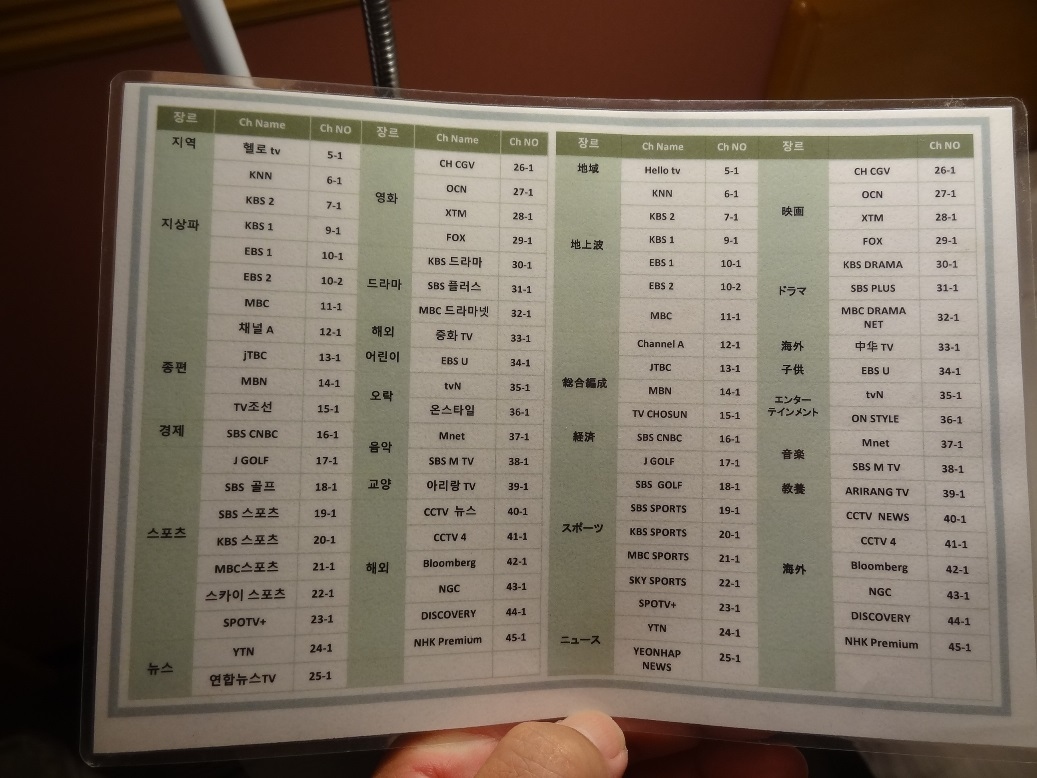 장르 Ch Name Ch NO 장르 Ch Name Ch NO
지역 헬로 tv 5-1 영화 CH CGV 26-1
KNN 6-1 OCN 27-1
지상파 KBS 2 7-1 XTM 28-1
KBS 1 9-1 FOX 29-1
EBS 1 10-1 드라마 KBS 드라마 30-1
EBS 2 10-2 SBS 플러스 31-1
MBC 11-1 MBC 드라마넷 32-1
종편 채널 A 12-1 해외 중화 TV 33-1
jTBC 13-1 어린이 EBS U 34-1
MBN 14-1 오락 tvN 35-1
TV조선 15-1 온스타일 36-1
경제 SBS CNBC 16-1 음악 Mnet 37-1
스포츠 J GOLF 17-1 SBS M TV 38-1
SBS 골프 18-1 교양 아리랑 TV 39-1
SBS 스포츠 19-1 해외 CCTV 뉴스 40-1
KBS 스포츠 20-1 CCTV 4 41-1
MBC스포츠 21-1 Bloomberg 42-1
스카이 스포츠 22-1 NGC 43-1
SPOTV+ 23-1 DISCOVERY 44-1
뉴스 YTN 24-1 NHK Premium 45-1
연합뉴스TV 25-1
장르 Ch Name Ch NO 장르 Ch NO
地域 Hello tv 5-1 映画 CH CGV 26-1
KNN 6-1 OCN 27-1
地上波 KBS 2 7-1 XTM 28-1
KBS 1 9-1 FOX 29-1
EBS 1 10-1 ドラマ KBS DRAMA 30-1
EBS 2 10-2 SBS PLUS 31-1
MBC 11-1 MBC DRAMA
NET 32-1
総合編成 Channel A 12-1 海外 中华 TV 33-1
JTBC 13-1 子供 EBS U 34-1
MBN 14-1 エンター
テインメント tvN 35-1
TV CHOSUN 15-1 ON STYLE 36-1
経済 SBS CNBC 16-1 音楽 Mnet 37-1
スポーツ J GOLF 17-1 SBS M TV 38-1
SBS GOLF 18-1 教養 ARIRANG TV 39-1
SBS SPORTS 19-1 海外 CCTV NEWS 40-1
KBS SPORTS 20-1 CCTV 4 41-1
MBC SPORTS 21-1 Bloomberg 42-1
SKY SPORTS 22-1 NGC 43-1
SPOTV+ 23-1 DISCOVERY 44-1
ニュース YTN 24-1 NHK Premium 45-1
YEONHAP
NEWS 25-1